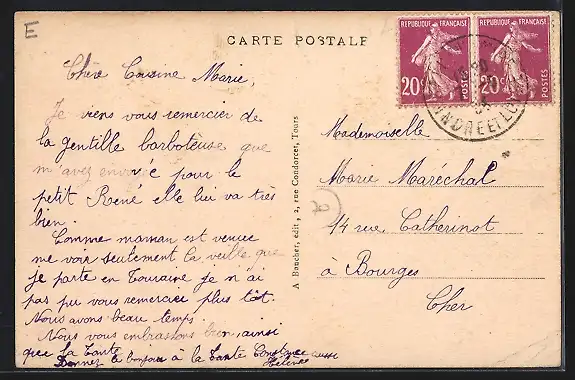 E
CARTE POSTALE
REPUBLIQUE FRANÇAISE
20c
POSTES
REPUBLIQUE FRANÇAISE
20c
POSTES
INDRE ET LOIRE
Chère Cousine Marie,
Je viens vous remercier de
la gentille barboteuse que
m'avez envoyée pour le
petit René elle lui va très
bien.
Comme maman est venue
me voir seulement la veille que
je parte en Touraine je n'ai
pas pu vous remercier plus tôt.
Nous avons beau temps.
Nous vous embrassons bien, ainsi
que la Tante
Donnez le bonjour à la Tante Constance aussi
Hélène
A Boucher, edit, 2, rue Condorcet, Tours
2
Mademoiselle
Marie Maréchal
14 rue Catherinot
à Bourges
Cher